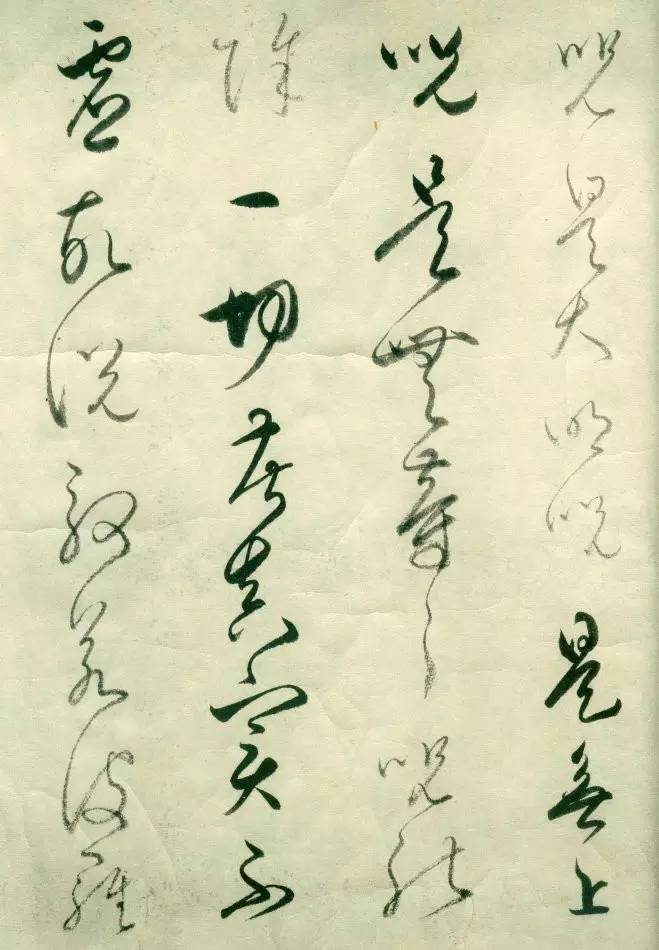 咒是大明咒是無上
咒是無等等咒能
除一切苦真實不
虛故說般若波羅